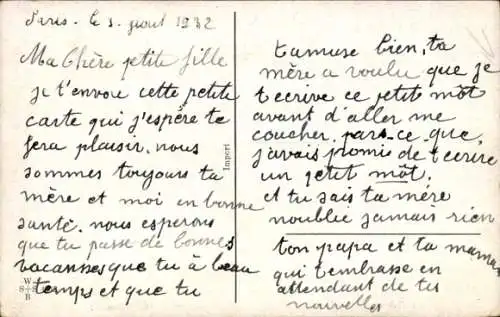 Paris - le 3. Aout 1932
Ma Chère petite fille
je t'envoie cette petite
carte qui j'espère te
fera plaisir. nous
sommes toujours ta
mère et moi en bonne
santé. nous esperons
que tu passe de bonnes
vacansses que tu à beau
temps et que tu
W
S+S
B
Import
tamuse bien, ta
mère a voulu que je
t'ecrive ce petit mot
avant d'aller me
coucher. pars-ce que,
j'avais promis de t'ecrire
un petit môt.
et tu sais ta mère
noublie jamais rien
ton papa et ta maman
qui t'embrasse en
attendant de tes
nouvelles